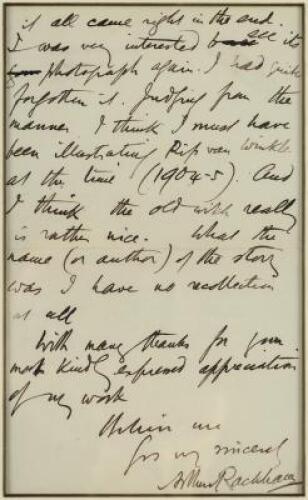 it all came right in the end.
I was very interested to see its
photograph again. I had quite
forgotten it. Judging from the
manner I think I must have
been illustrating Rip van Winkle
at the time (1904-5). And
I think the old witch really
is rather nice. What the
name (or author) of the story
was I have no recollection
at all
With many thanks for your
most kindly expressed appreciation
of my work
Believe me
yrs very sincerely
Arthur Rackham